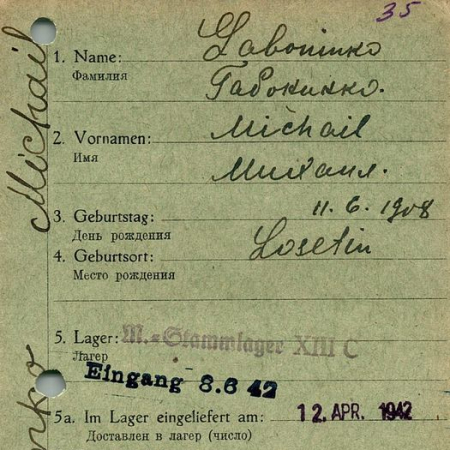 35
1. Name: Gaboninko
Фамилия Габокинко.
2. Vornamen: Michail
Имя Михаил.
3. Geburtstag: 11. 6. 1908
День рождения
4. Geburtsort: Losetin
Место рождения
5. Lager: M.-Stammlager XIII C
Лагер
Eingang 8.6 42
5a. Im Lager eingeliefert am: 12. APR. 1942
Доставлен в лагер (число)
Michail